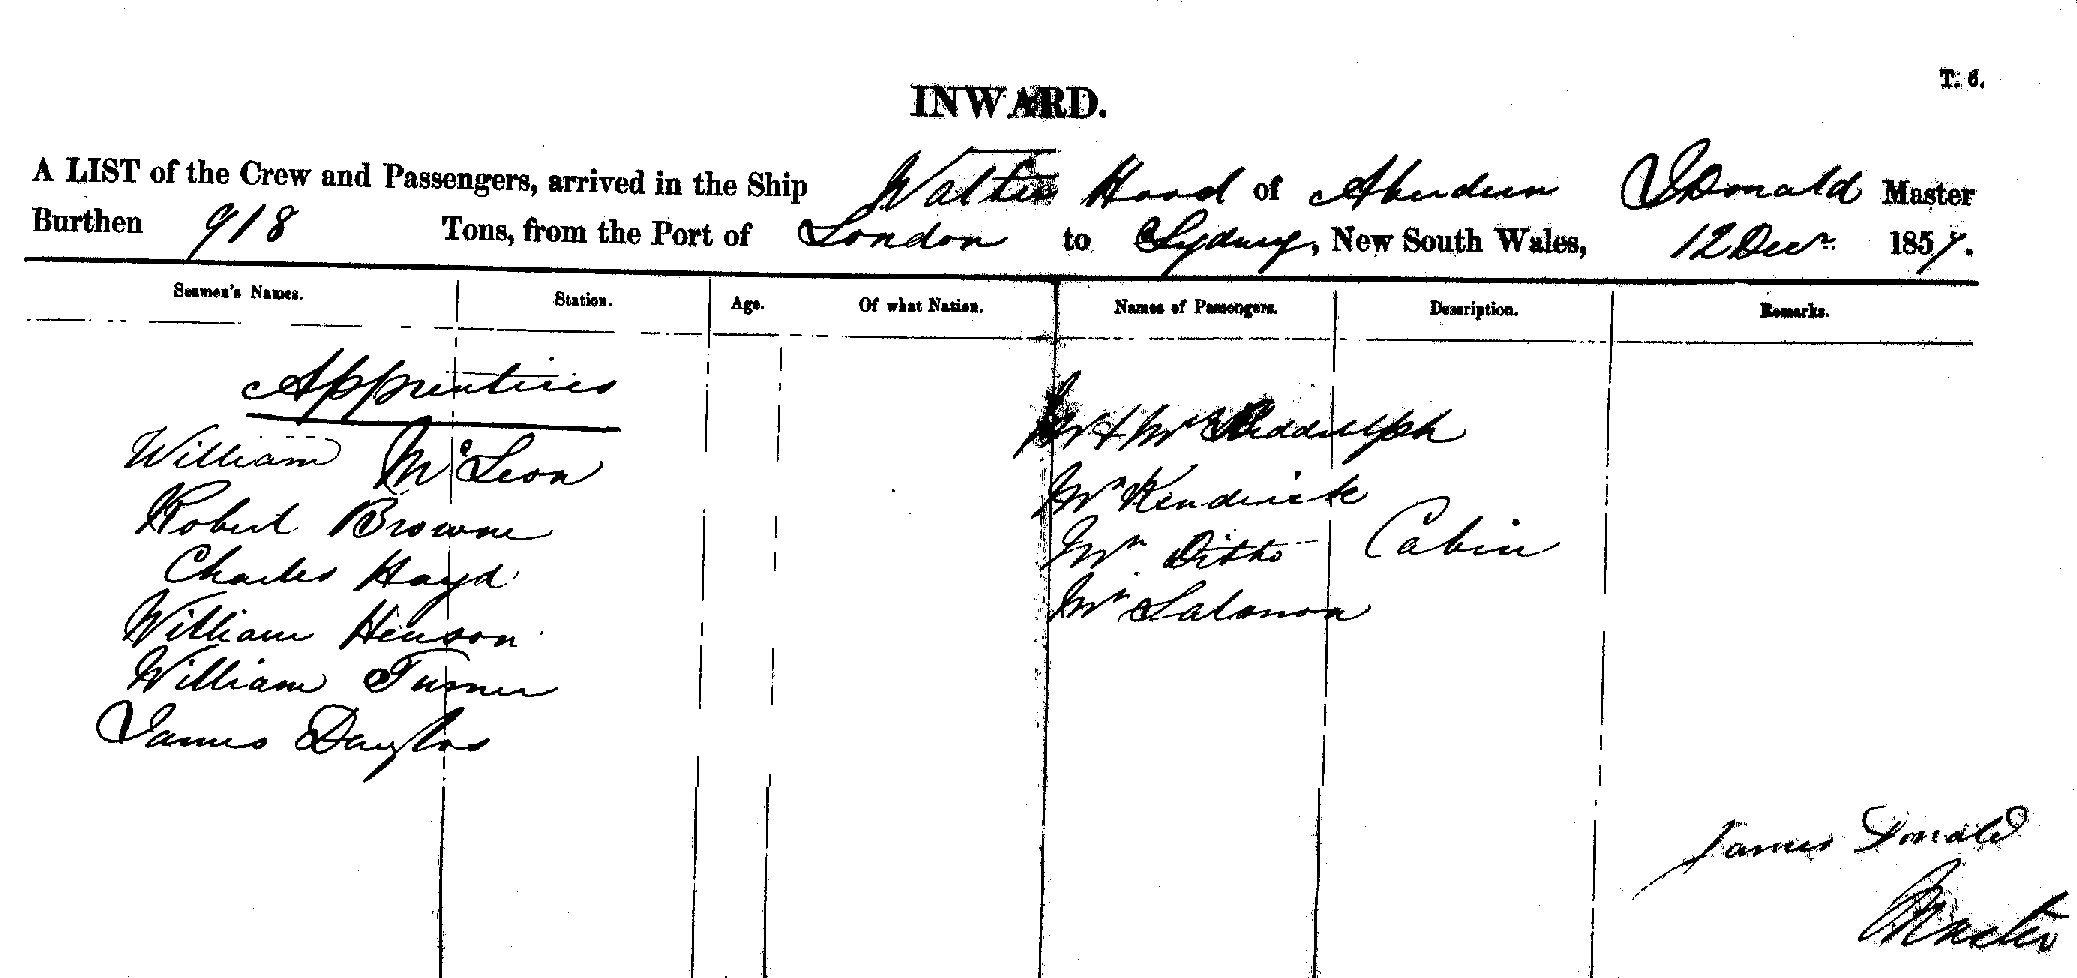 T. 6.
INWARD.
A LIST of the Crew and Passengers, arrived in the Ship Walter Hood of Aberdeen J Donald Master
Burthen 918 Tons, from the Port of London to Sydney, New South Wales, 12 Decr 1857.
Seamen's Names. Station. Age. Of what Nation. Names of Passengers. Description. Remarks.
Apprentices
William McLeon
Robert Browne
Charles Hayd
William Henson
William Turner
James Douglas
Mr & Mrs Biddulph
Mr Kendrick
Mrs Ditto
Mr Salomon
Cabin
James Donald
Master